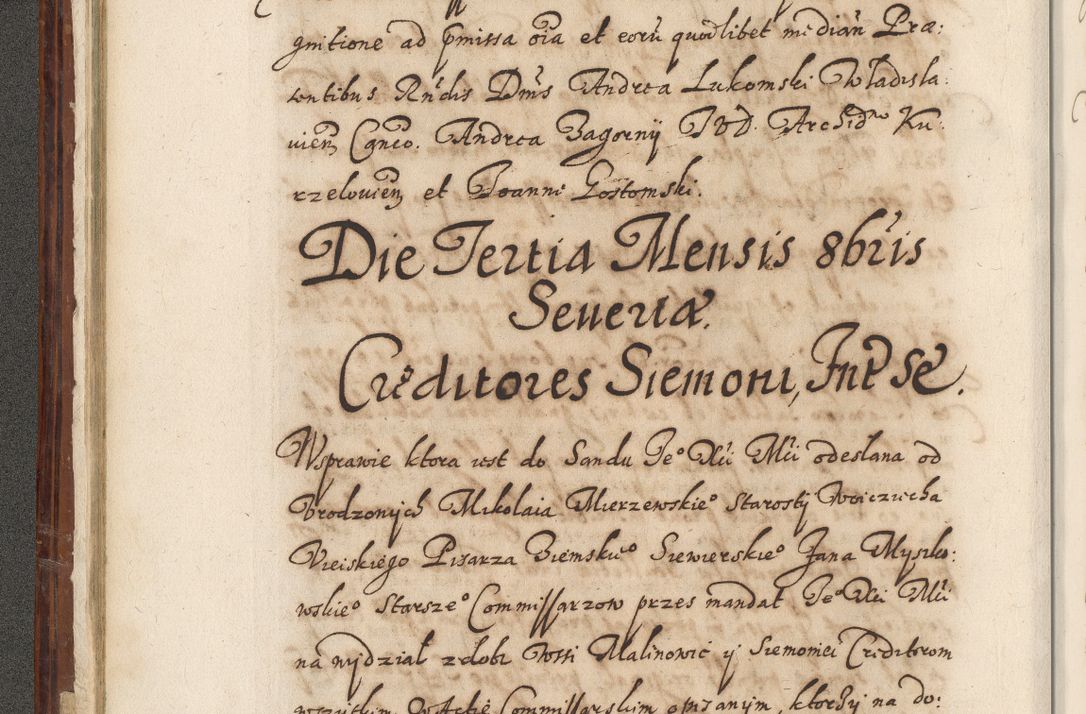 gnitione ad p̄missa oīa et eorū quodlibet mediań Præ:
sentibus Rńdis Dńis Andrea Lukomski Wladisla
uień Canco. Andrea Zagorny I V D. Archid^no Ku:
rzelouień et Joanne Gostomski.
Die Tertia Mensis 8bris
Seueriæ.
Creditores Siemoni, Int se.
W sprawie ktora iest do Sandu Je^o Xci Mci odeslana od
Vrodzonych Mikolaia Mierzewskie^o Starosty Woiciecha
Vieiskiego Pisarza Ziemskie^o Siewierskie^o Jana Myszko:
wskie^o Starsze^o Commissarzow przes mandat Je^o Xci Mci
na wydział z dobr Wssi Malinowic y Siemonici Creditorom
wszytkim W Actie Commissarskim opisanym, ktorzy na do: